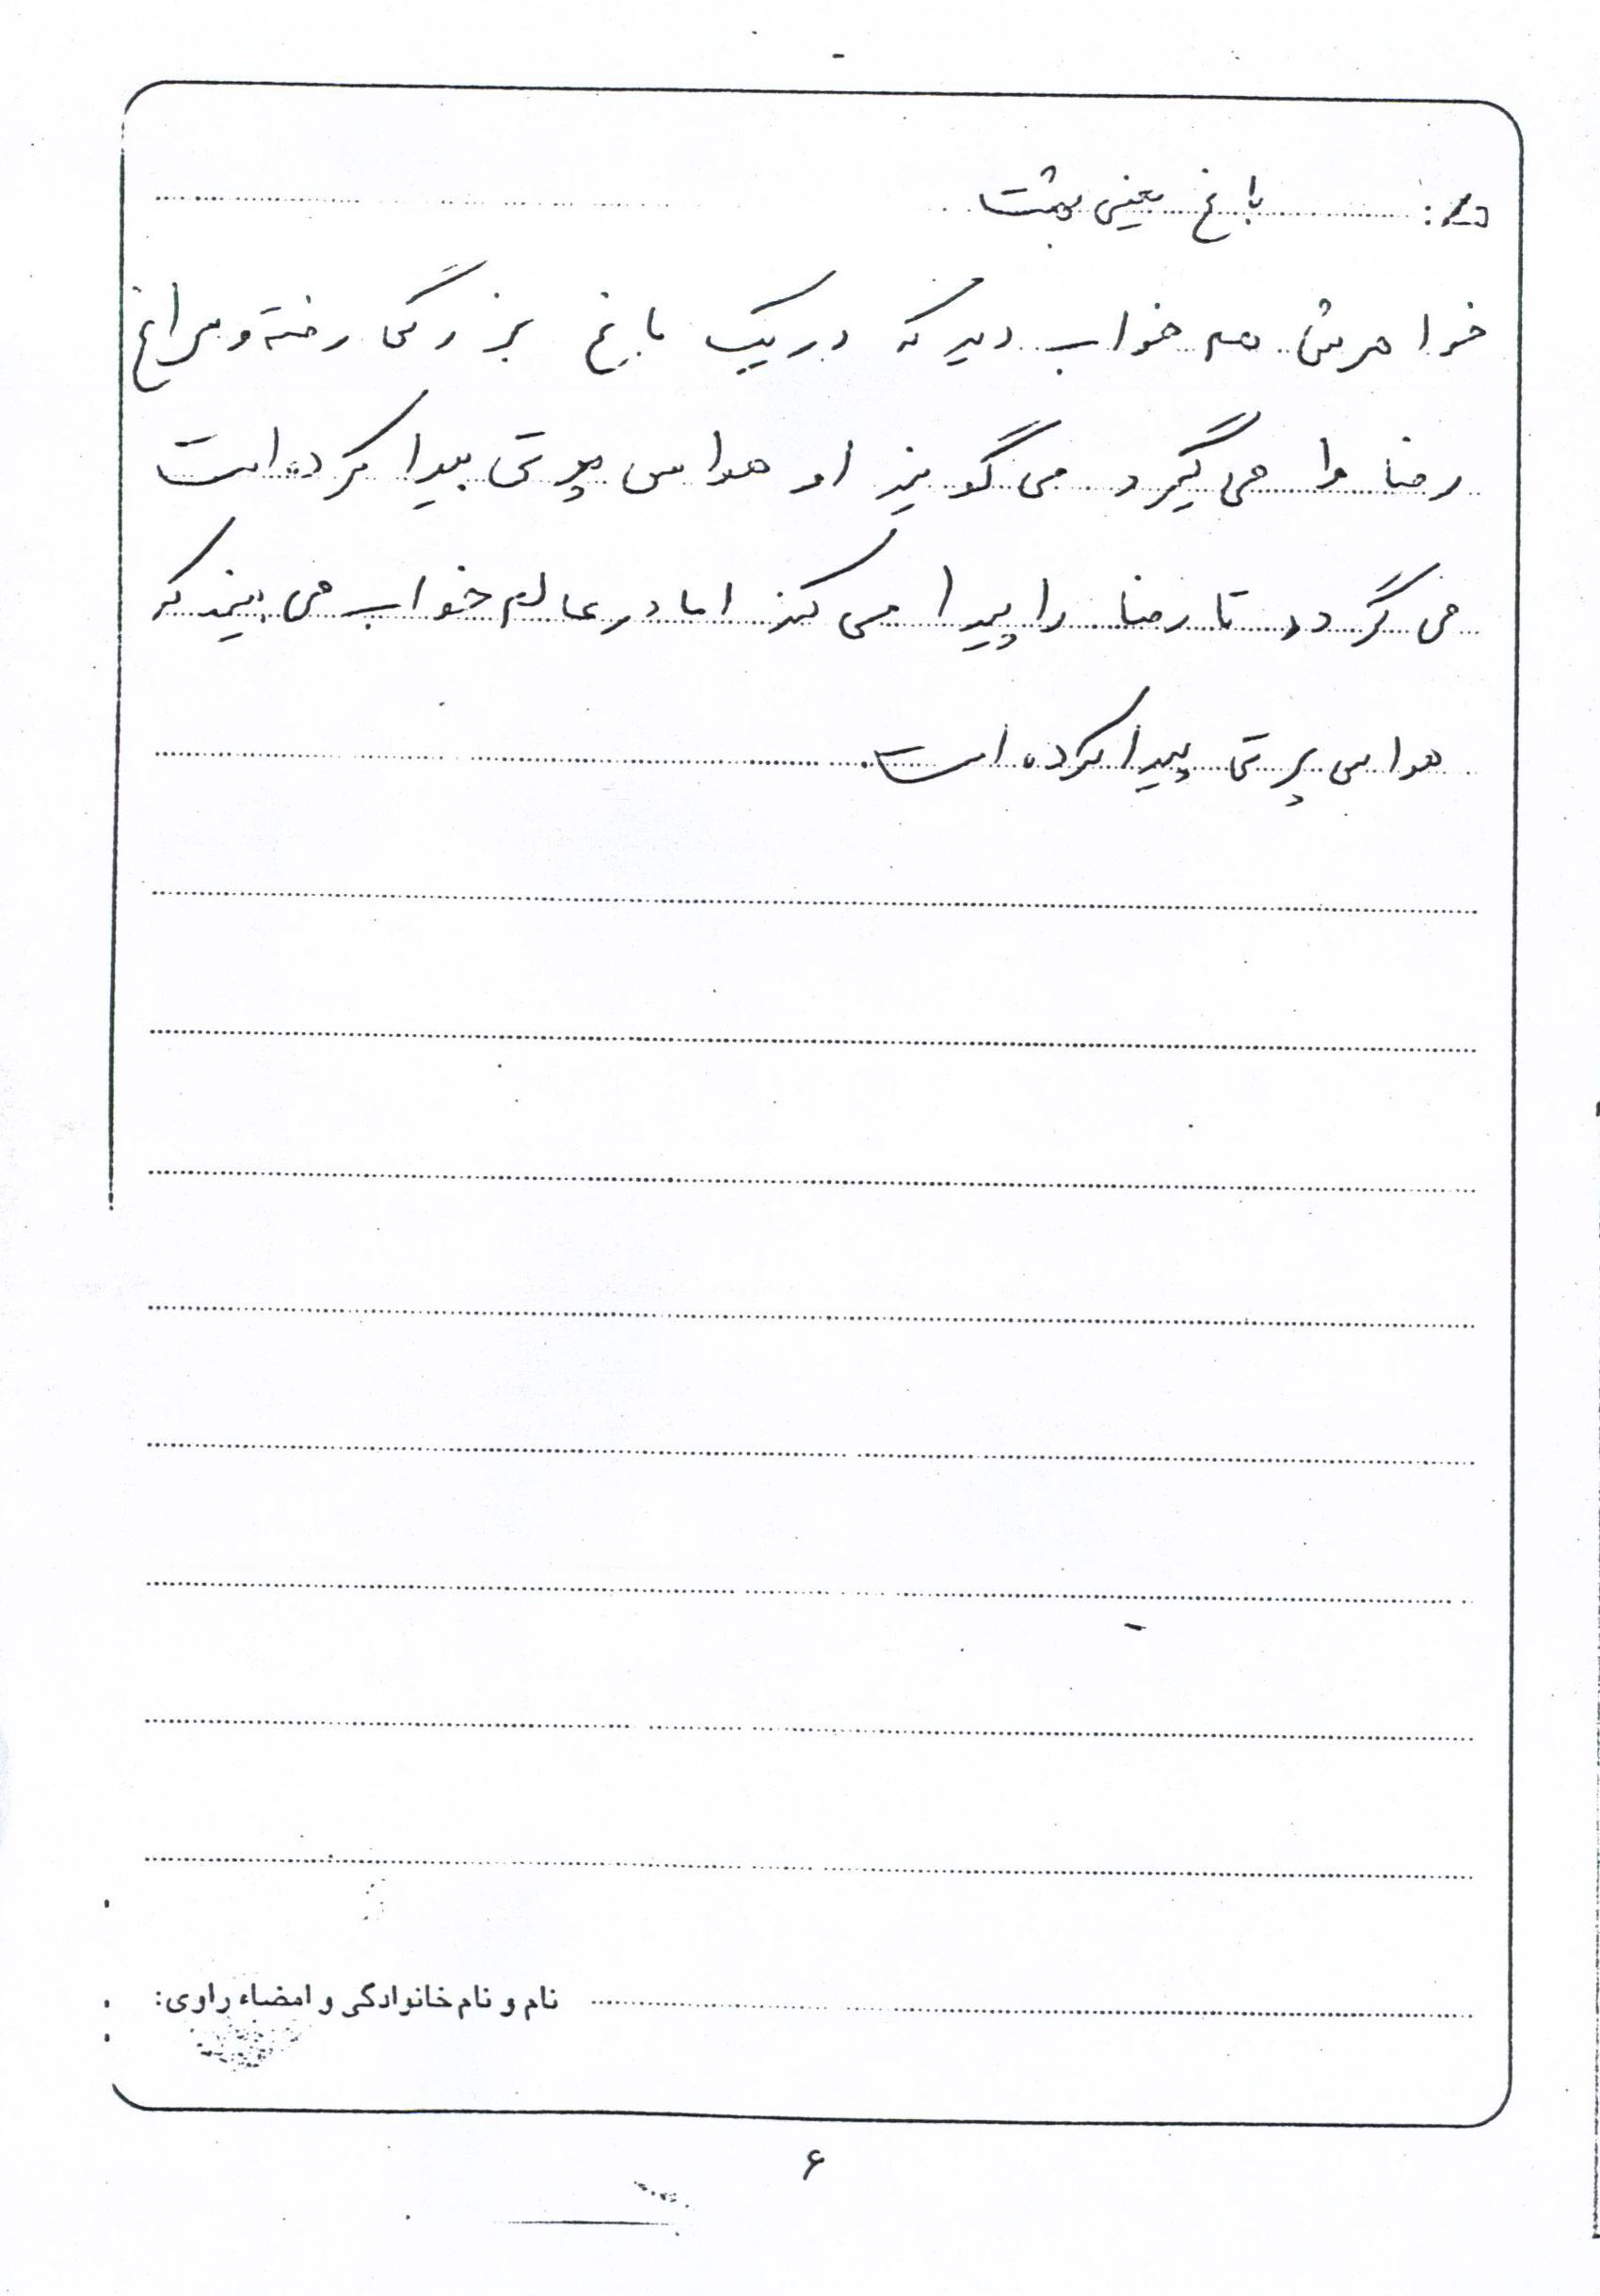 باغ یعنی بهشت
خواهرش هم خواب دید که در یک باغ بزرگی رفته و سراغ
رضا را می گیرد می گویند او حواس پرتی پیدا کرده است
می گردد تا رضا را پیدا می کند اما در عالم خواب می بیند که
هواس پرتی پیدا کرده است.
نام و نام خانوادگی و امضاء راوی:
۶